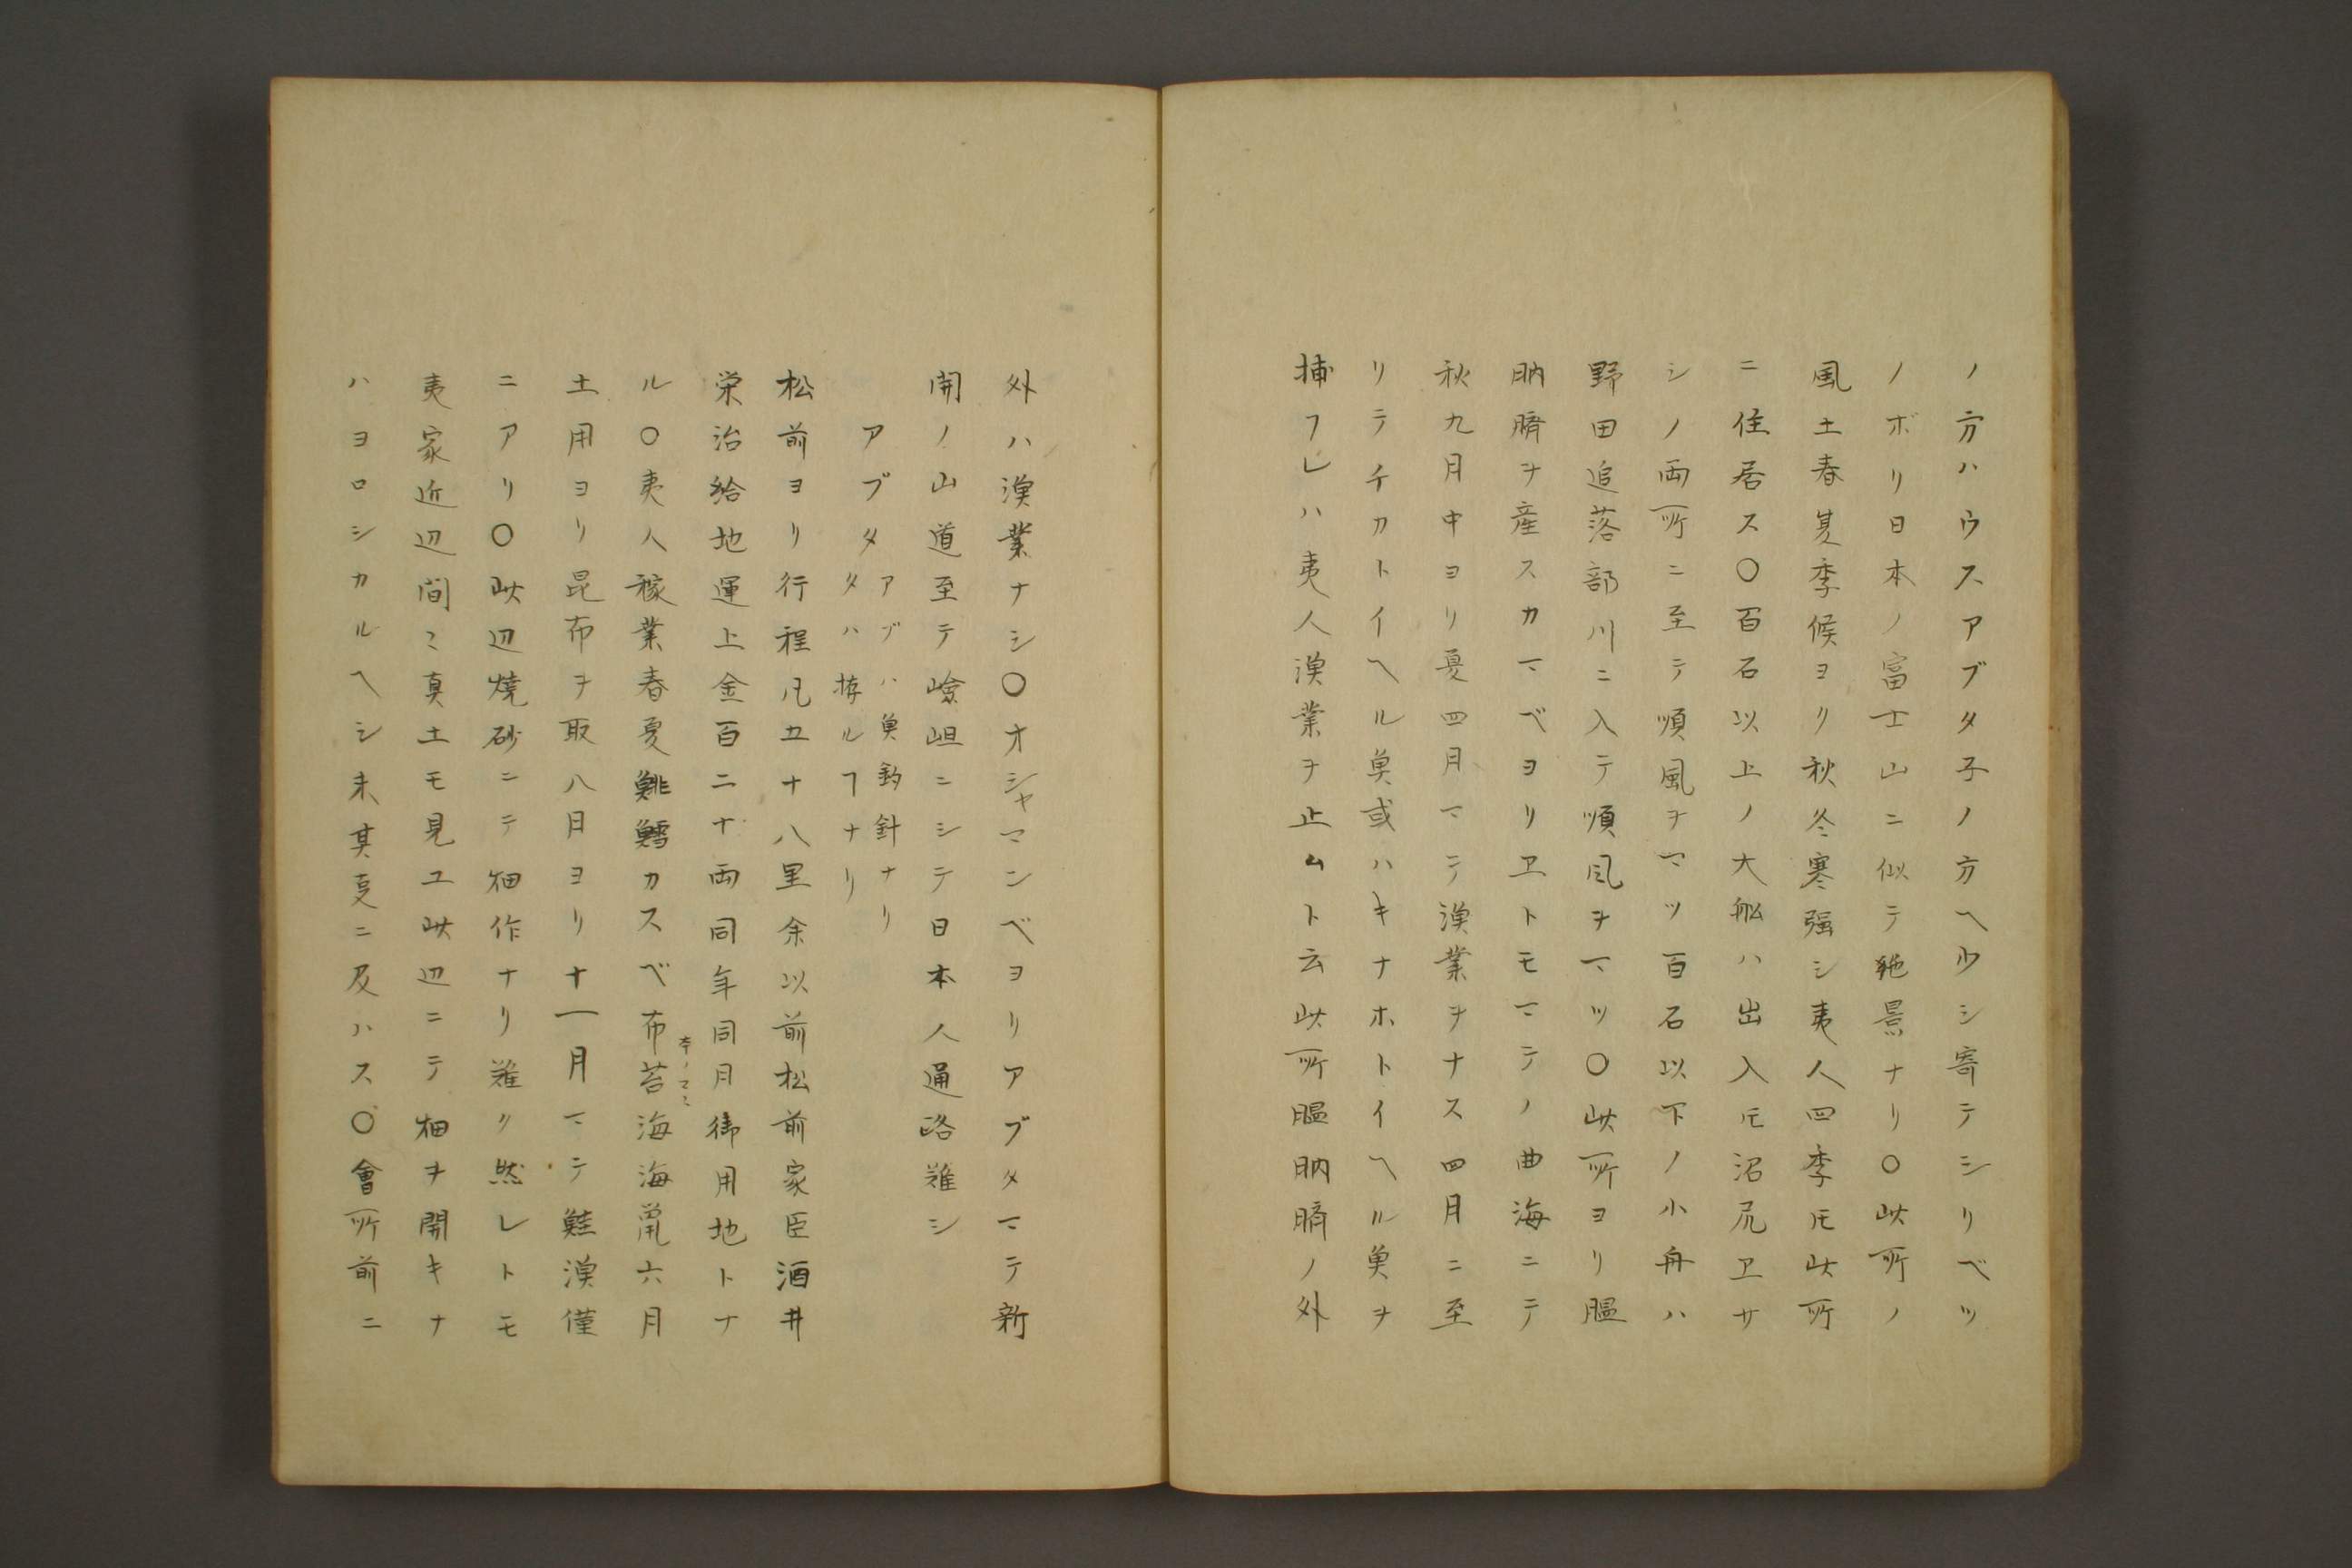 ノ方ハウスアブタ子ノ方ヘ少シ寄テシリベツ
ノボリ日本ノ富士山ニ似テ絶景ナリ〇此所ノ
風土春夏季候ヨリ秋冬寒強シ夷人四季𪜈此所
ニ住居ス〇百石以上ノ大船ハ出入𪜈沼尻ヱサ
シノ両所ニ至テ順風ヲマツ百石以下ノ小舟ハ
野田追落部川ニ入テ順風ヲマツ〇此所ヨリ膃
肭臍ヲ産スカマベヨリヱトモマテノ曲海ニテ
秋九月中ヨリ夏四月マテ漁業ヲナス四月ニ至
リテチカトイヘル魚或ハキナホトイヘル魚ヲ
捕フレハ夷人漁業ヲ止ムト云此所膃肭臍ノ外
外ハ漁業ナシ〇オシャマンベヨリアブタマテ新
開ノ山道至テ嶮岨ニシテ日本人通路難シ
アブタ
アブハ魚釣針ナリ
タハ捞ルヿナリ
松前ヨリ行程凡五十八里余以前松前家臣酒井
栄治給地運上金百二十両同年同月御用地トナ
ル〇夷人稼業春夏鯡鱈カスベ布苔海海鼠六月
本ノママ
土用ヨリ昆布ヲ取八月ヨリ十一月マテ鮭漁僅
ニアリ〇此辺焼砂ニテ畑作ナリ難ク然レトモ
夷家近辺間〻真土モ見ユ此辺ニテ畑ヲ開キナ
ハヨロシカルヘシ未其㕝ニ及ハス〇會所前ニ